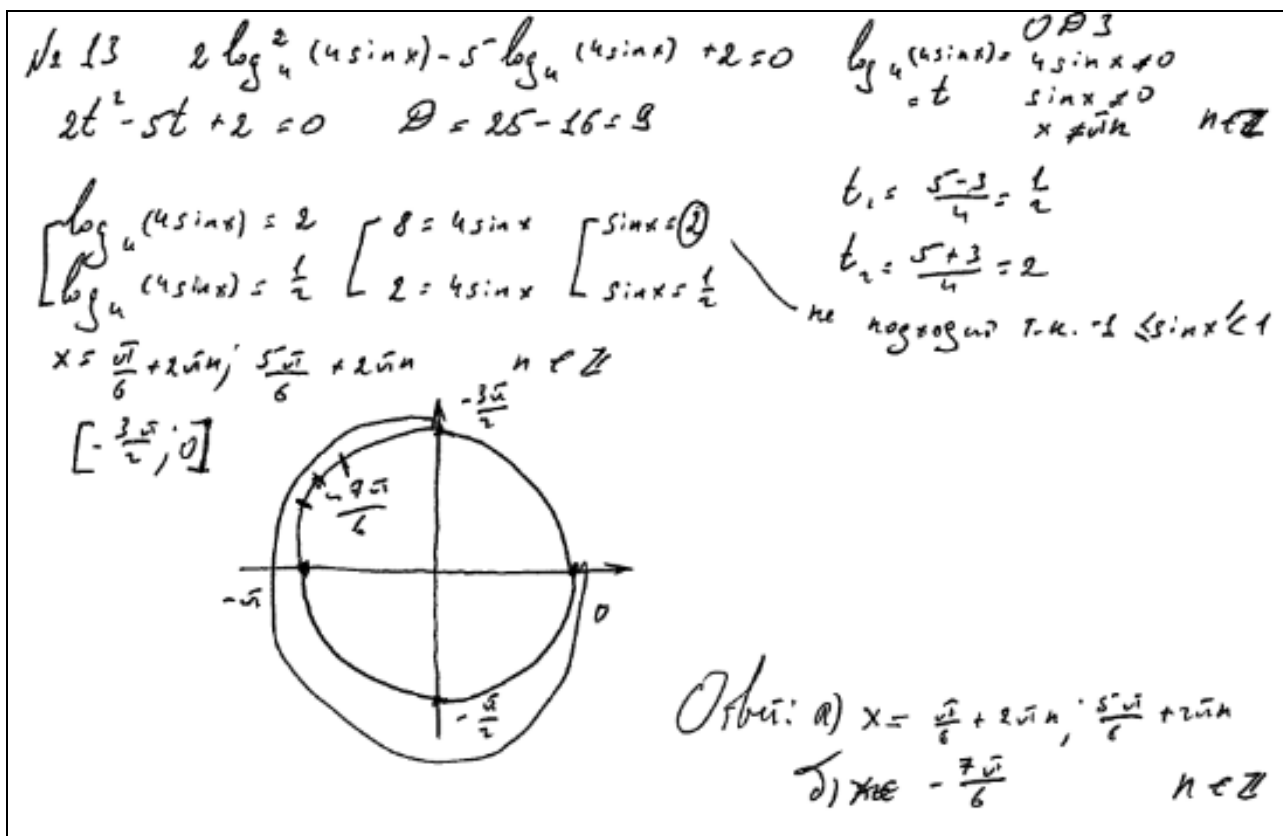 № 13 2 log₄² (4sinx) - 5 log₄ (4sinx) + 2 = 0 log₄ (4sinx) = = t
ОДЗ
4sinx ≠ 0
sinx ≠ 0
x ≠ πn n ∈ ℤ
2t² - 5t + 2 = 0 D = 25 - 16 = 9
t₁ = (5-3)/4 = 1/2
t₂ = (5+3)/4 = 2
[ log₄ (4sinx) = 2 [ 8 = 4sinx [ sinx = 2
log₄ (4sinx) = 1/2 2 = 4sinx sinx = 1/2
не подходит т.к. -1 ≤ sinx ≤ 1
x = π/6 + 2πn; 5π/6 + 2πn n ∈ ℤ
[-3π/2; 0]
-3π/2
-7π/6
-π
0
-π/2
Ответ: а) x = π/6 + 2πn; 5π/6 + 2πn
б) -7π/6 n ∈ ℤ